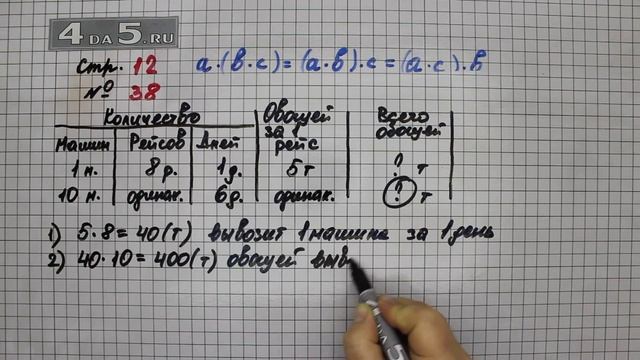 4 DA 5.RU
Стр. 12 а·(в·с)=(а·в)·с=(а·с)·в
№ 38
Количество Овощей за 1 рейс Всего овощей
Машин Рейсов Дней
1 м. 8 р. 1 д. 5 т ? т
10 м. одинак. 6 д. одинак. ? т
1) 5·8=40(т) вывозит 1 машина за 1 день
2) 40·10=400(т) овощей выв